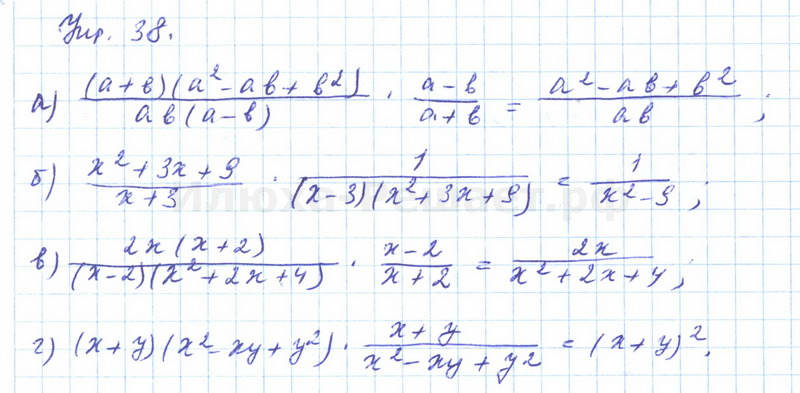 Упр. 38.
а) (a+b)(a²-ab+b²) / ab(a-b) · a-b / a+b = a²-ab+b² / ab ;
б) x²+3x+9 / x+3 · 1 / (x-3)(x²+3x+9) = 1 / x²-9 ;
в) 2x(x+2) / (x-2)(x²+2x+4) · x-2 / x+2 = 2x / x²+2x+4 ;
г) (x+y)(x²-xy+y²) · x+y / x²-xy+y² = (x+y)².